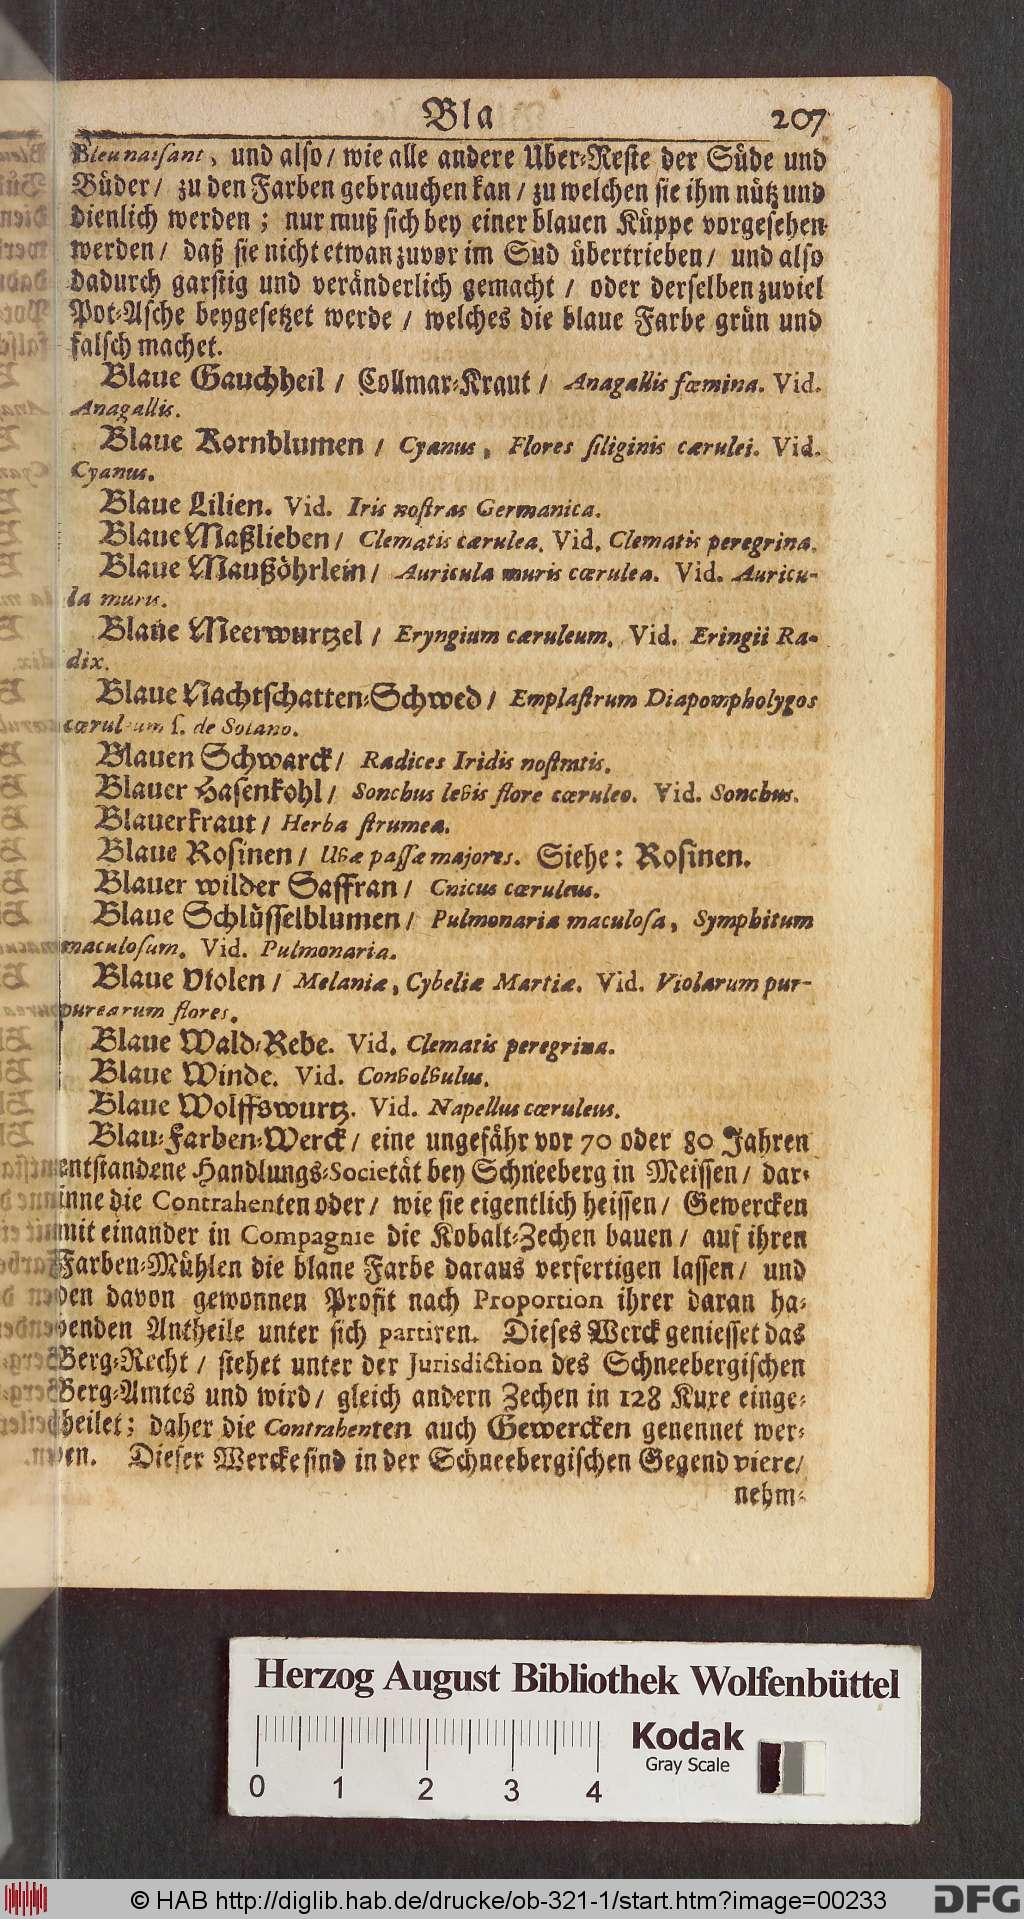 Bla 207
Bleunaisant, und also / wie alle andere Uber-Reste der Süde und
Büder / zu den Farben gebrauchen kan / zu welchen sie ihm nütz und
dienlich werden ; nur muß sich bey einer blauen Küppe vorgesehen
werden / daß sie nicht etwan zuvor im Sud übertrieben / und also
dadurch garstig und veränderlich gemacht / oder derselben zuviel
Pot-Asche beygesetzet werde / welches die blaue Farbe grün und
falsch machet.
Blaue Gauchheil / Collmar-Kraut / Anagallis fœmina. Vid.
Anagallis.
Blaue Kornblumen / Cyanus, Flores siliginis cærulei. Vid.
Cyanus.
Blaue Lilien. Vid. Iris nostras Germanica.
Blaue Maßlieben / Clematis cærulea. Vid. Clematis peregrina.
Blaue Maußöhrlein / Auricula muris cœrulea. Vid. Auricu-
la muris.
Blaue Meerwurtzel / Eryngium cæruleum. Vid. Eringii Ra-
dix.
Blaue Nachtschatten-Schwed / Emplastrum Diapompholygos
cœruleum s. de Solano.
Blauen Schwarck / Radices Iridis nostratis.
Blauer Hasenkohl / Sonchus levis flore cœruleo. Vid. Sonchus.
Blauerkraut / Herba strumea.
Blaue Rosinen / Uvæ passæ majores. Siehe: Rosinen.
Blauer wilder Saffran / Cnicus cœruleus.
Blaue Schlüsselblumen / Pulmonaria maculosa, Symphitum
maculosum. Vid. Pulmonaria.
Blaue Violen / Melaniæ, Cybeliæ Martiæ. Vid. Violarum pur-
purearum flores.
Blaue Wald-Rebe. Vid. Clematis peregrina.
Blaue Winde. Vid. Convolvulus.
Blaue Wolffswurtz. Vid. Napellus cœruleus.
Blau-Farben-Werck / eine ungefähr vor 70 oder 80 Jahren
entstandene Handlungs-Societät bey Schneeberg in Meissen / dar-
inne die Contrahenten oder / wie sie eigentlich heissen / Gewercken
mit einander in Compagnie die Kobalt-Zechen bauen / auf ihren
Farben-Mühlen die blaue Farbe daraus verfertigen lassen / und
den davon gewonnen Profit nach Proportion ihrer daran ha-
benden Antheile unter sich partiren. Dieses Werck geniesset das
Berg-Recht / stehet unter der Jurisdiction des Schneebergischen
Berg-Amtes und wird / gleich andern Zechen in 128 Kuxe einge-
theilet ; daher die Contrahenten auch Gewercken genennet wer-
den. Dieser Wercke sind in der Schneebergischen Gegend viere /
nehm-
Herzog August Bibliothek Wolfenbüttel
Kodak
Gray Scale
0 1 2 3 4
© HAB http://diglib.hab.de/drucke/ob-321-1/start.htm?image=00233
DFG